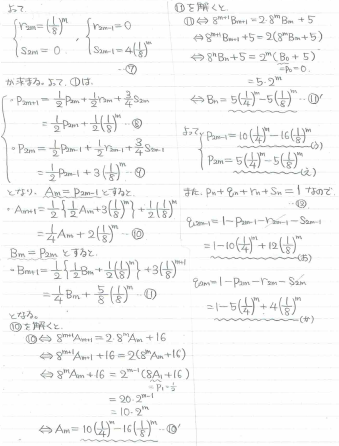 よって
{ r₂ₘ = (1/8)^m , { r₂ₘ₋₁ = 0
{ s₂ₘ = 0 { s₂ₘ₋₁ = 4(1/8)^m …⑦
が成する。よって、①は、
・p₂ₘ₊₁ = 1/2 p₂ₘ + 1/2 r₂ₘ + 3/4 s₂ₘ
= 1/2 p₂ₘ + 1/2 (1/8)^m …⑧
・p₂ₘ = 1/2 p₂ₘ₋₁ + 1/2 r₂ₘ₋₁ + 3/4 s₂ₘ₋₁
= 1/2 p₂ₘ₋₁ + 3(1/8)^m …⑨
となり、Aₘ = p₂ₘ₋₁ とすると、
・Aₘ₊₁ = 1/2 { 1/2 Aₘ + 3(1/8)^m } + 1/2 (1/8)^m
= 1/4 Aₘ + 2(1/8)^m …⑩
Bₘ = p₂ₘ とすると、
・Bₘ₊₁ = 1/2 { 1/2 Bₘ + 1/2 (1/8)^m } + 3(1/8)^{m+1}
= 1/4 Bₘ + 5/8 (1/8)^m …⑪
となる。
⑩を解くと、
⑩ ⇔ 8^{m+1} Aₘ₊₁ = 2·8^m Aₘ + 16
⇔ 8^{m+1} Aₘ₊₁ + 16 = 2(8^m Aₘ + 16)
⇔ 8^m Aₘ + 16 = 2^{m-1} (8A₁ + 16)
= p₁ = 1/2
= 20·2^{m-1}
= 10·2^m
⇔ Aₘ = 10(1/4)^m - 16(1/8)^m …⑩'
⑪を解くと、
⑪ ⇔ 8^{m+1} Bₘ₊₁ = 2·8^m Bₘ + 5
⇔ 8^{m+1} Bₘ₊₁ + 5 = 2(8^m Bₘ + 5)
⇔ 8^m Bₘ + 5 = 2^m (B₀ + 5)
= p₀ = 0.
= 5·2^m
⇔ Bₘ = 5(1/4)^m - 5(1/8)^m …⑪'
よって { p₂ₘ₋₁ = 10(1/4)^m - 16(1/8)^m
{ p₂ₘ = 5(1/4)^m - 5(1/8)^m
(え)
また、pₙ + qₙ + rₙ + sₙ = 1 なので
…⑫
q₂ₘ₋₁ = 1 - p₂ₘ₋₁ - r₂ₘ₋₁ - s₂ₘ₋₁
= 1 - 10(1/4)^m + 12(1/8)^m
(お)
q₂ₘ = 1 - p₂ₘ - r₂ₘ - s₂ₘ
= 1 - 5(1/4)^m + 4(1/8)^m